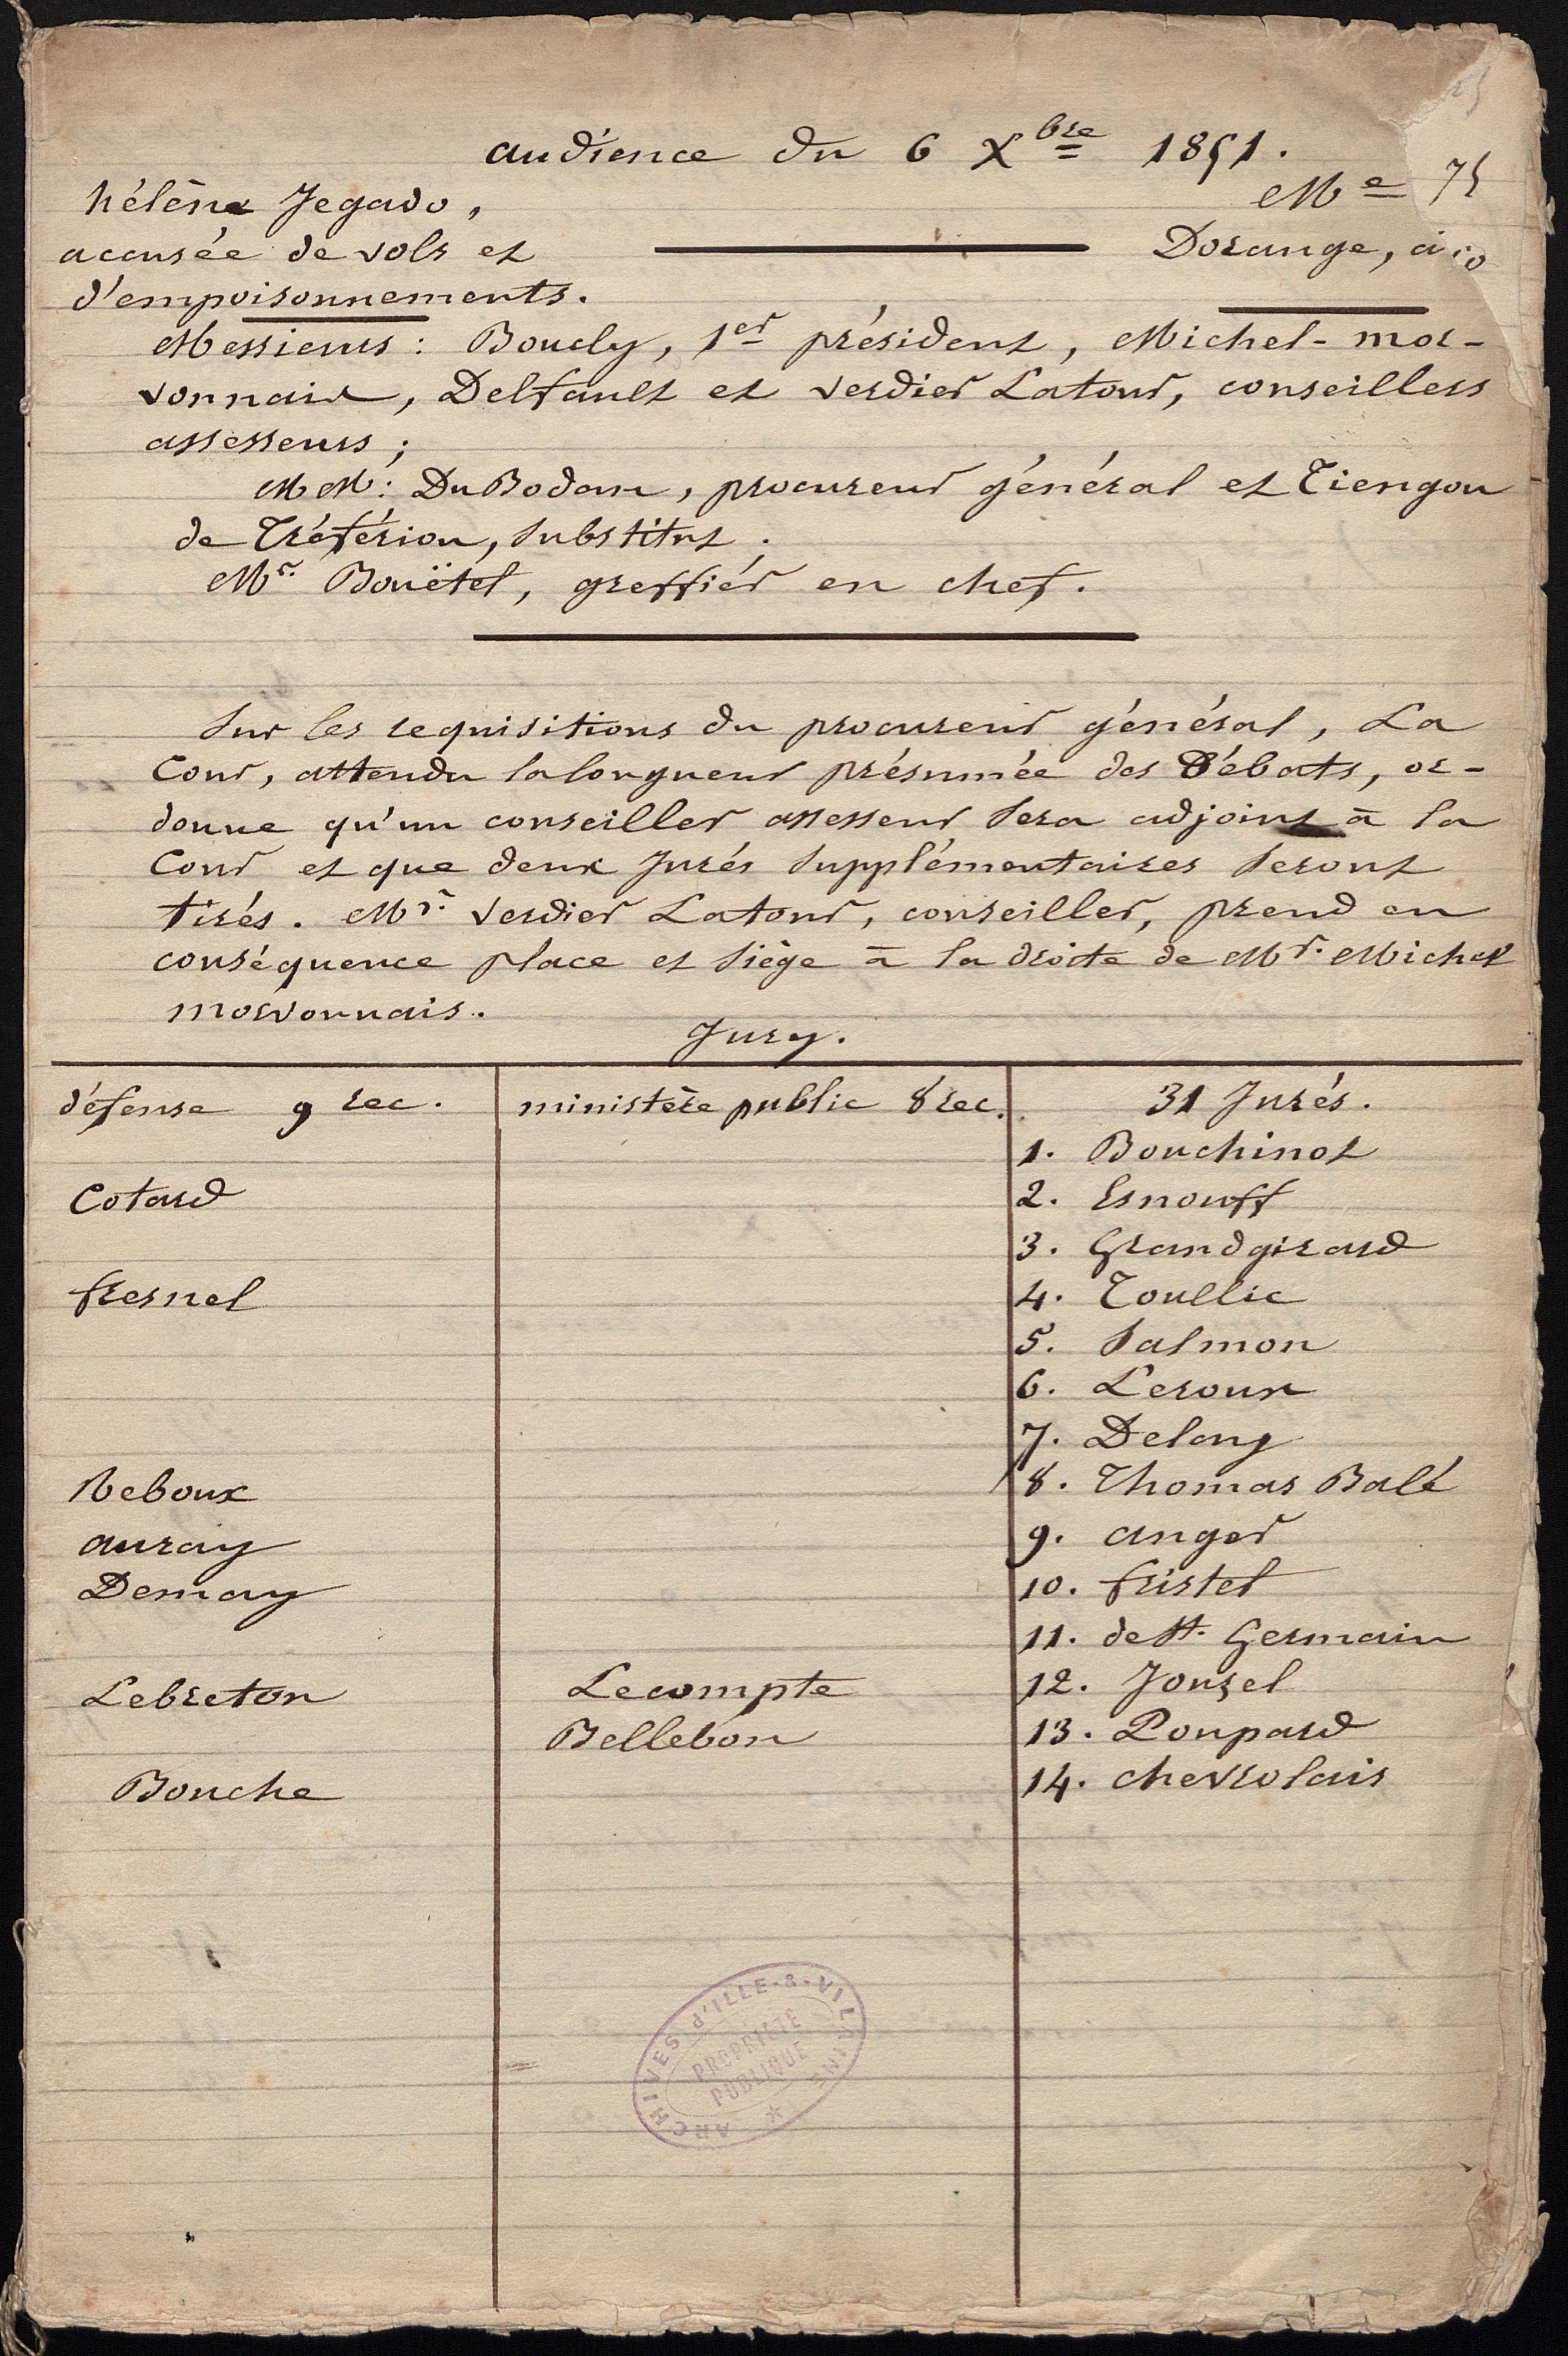 audience du 6 Xbre 1851.
hélène Jegado,
accusée de vols et
d'empoisonnements.
Me 75
Dorange,
Messieurs : Boucly, 1er président, Michel-mor-
vonnais, Delfault et verdier Latour, conseillers
assesseurs ;
MM: DuBodan, procureur général et Tiengou
de Tréfériou, substitut.
Mr. Bouëtel, greffier en chef.
Sur les requisitions du procureur général, La
Cour, attendu la longueur présumée des Débats, or-
donne qu'un conseiller assesseur sera adjoint à la
Cour et que deux Jurés supplémentaires seront
tirés. Mr. verdier Latour, conseiller, prend en
conséquence place et siège à la droite de Mr. Michel
morvonnais.
Jury.
défense 9 rec. ministère public 8 rec. 31 Jurés.
1. Bouchinot
Cotard 2. Esnouff
3. Grandgirard
fresnel 4. Toullic
5. Salmon
6. Leroux
7. Delong
Reboux 8. Thomas Balé
auray 9. anger
Demay 10. fristel
11. de St. Germain
Lebreton Lecompte 12. Jouzel
Bellebon 13. Poupard
Bouche 14. chevrolais
ARCHIVES d'ILLE-&-VILAINE
PROPRIÉTÉ
PUBLIQUE